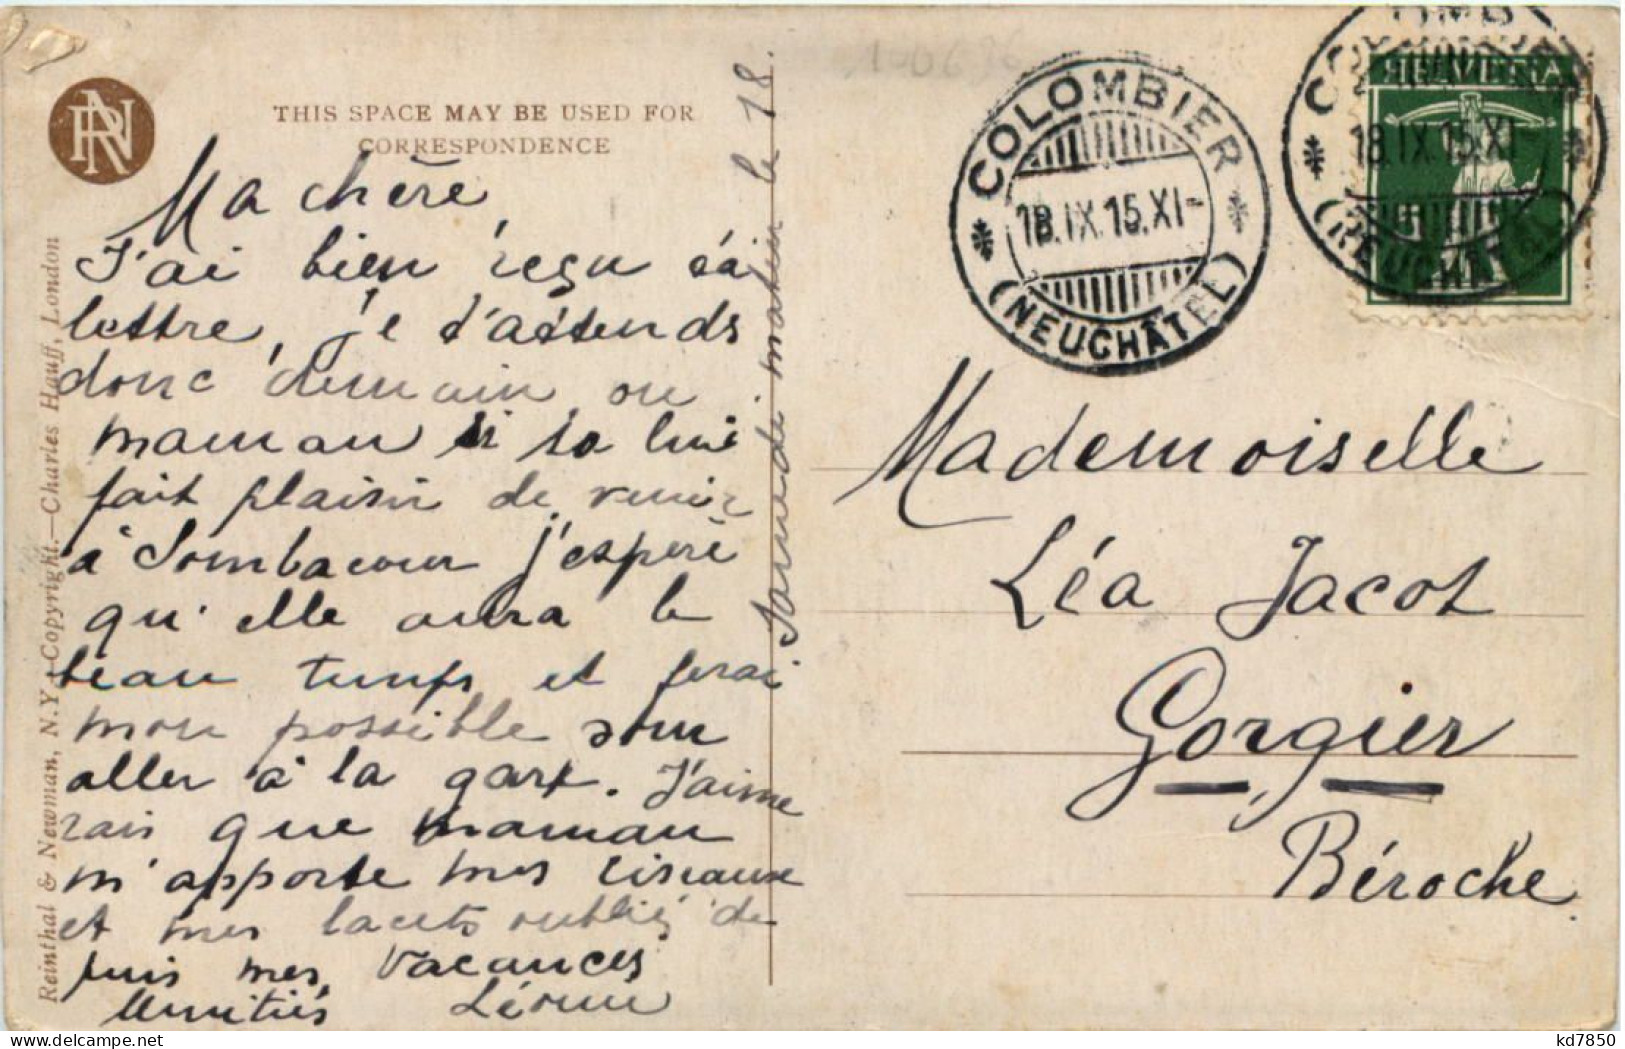 THIS SPACE MAY BE USED FOR
CORRESPONDENCE
RN
Ma chère,
J'ai bien reçu ta
lettre, je t'attends
donc demain ou
maman si ça lui
fait plaisir de venir
à Sombacour j'espère
qu'elle aura le
beau temps et ferai
mon possible pour
aller à la gare. J'aime
rais que maman
m'apporte mes ciseaux
et mes lacets oubliés de
puis mes vacances
Amitiés Léonie
Samedi matin le 18.
Reinthal & Newman, N.Y. Copyright.—Charles Hauff, London
COLOMBIER
18.IX.15.XI-
(NEUCHÂTEL)
HELVETIA
COLOMBIER
18.IX.15.XI-
(NEUCHÂTEL)
Mademoiselle
Léa Jacot
Gorgier
Béroche.
kd7850